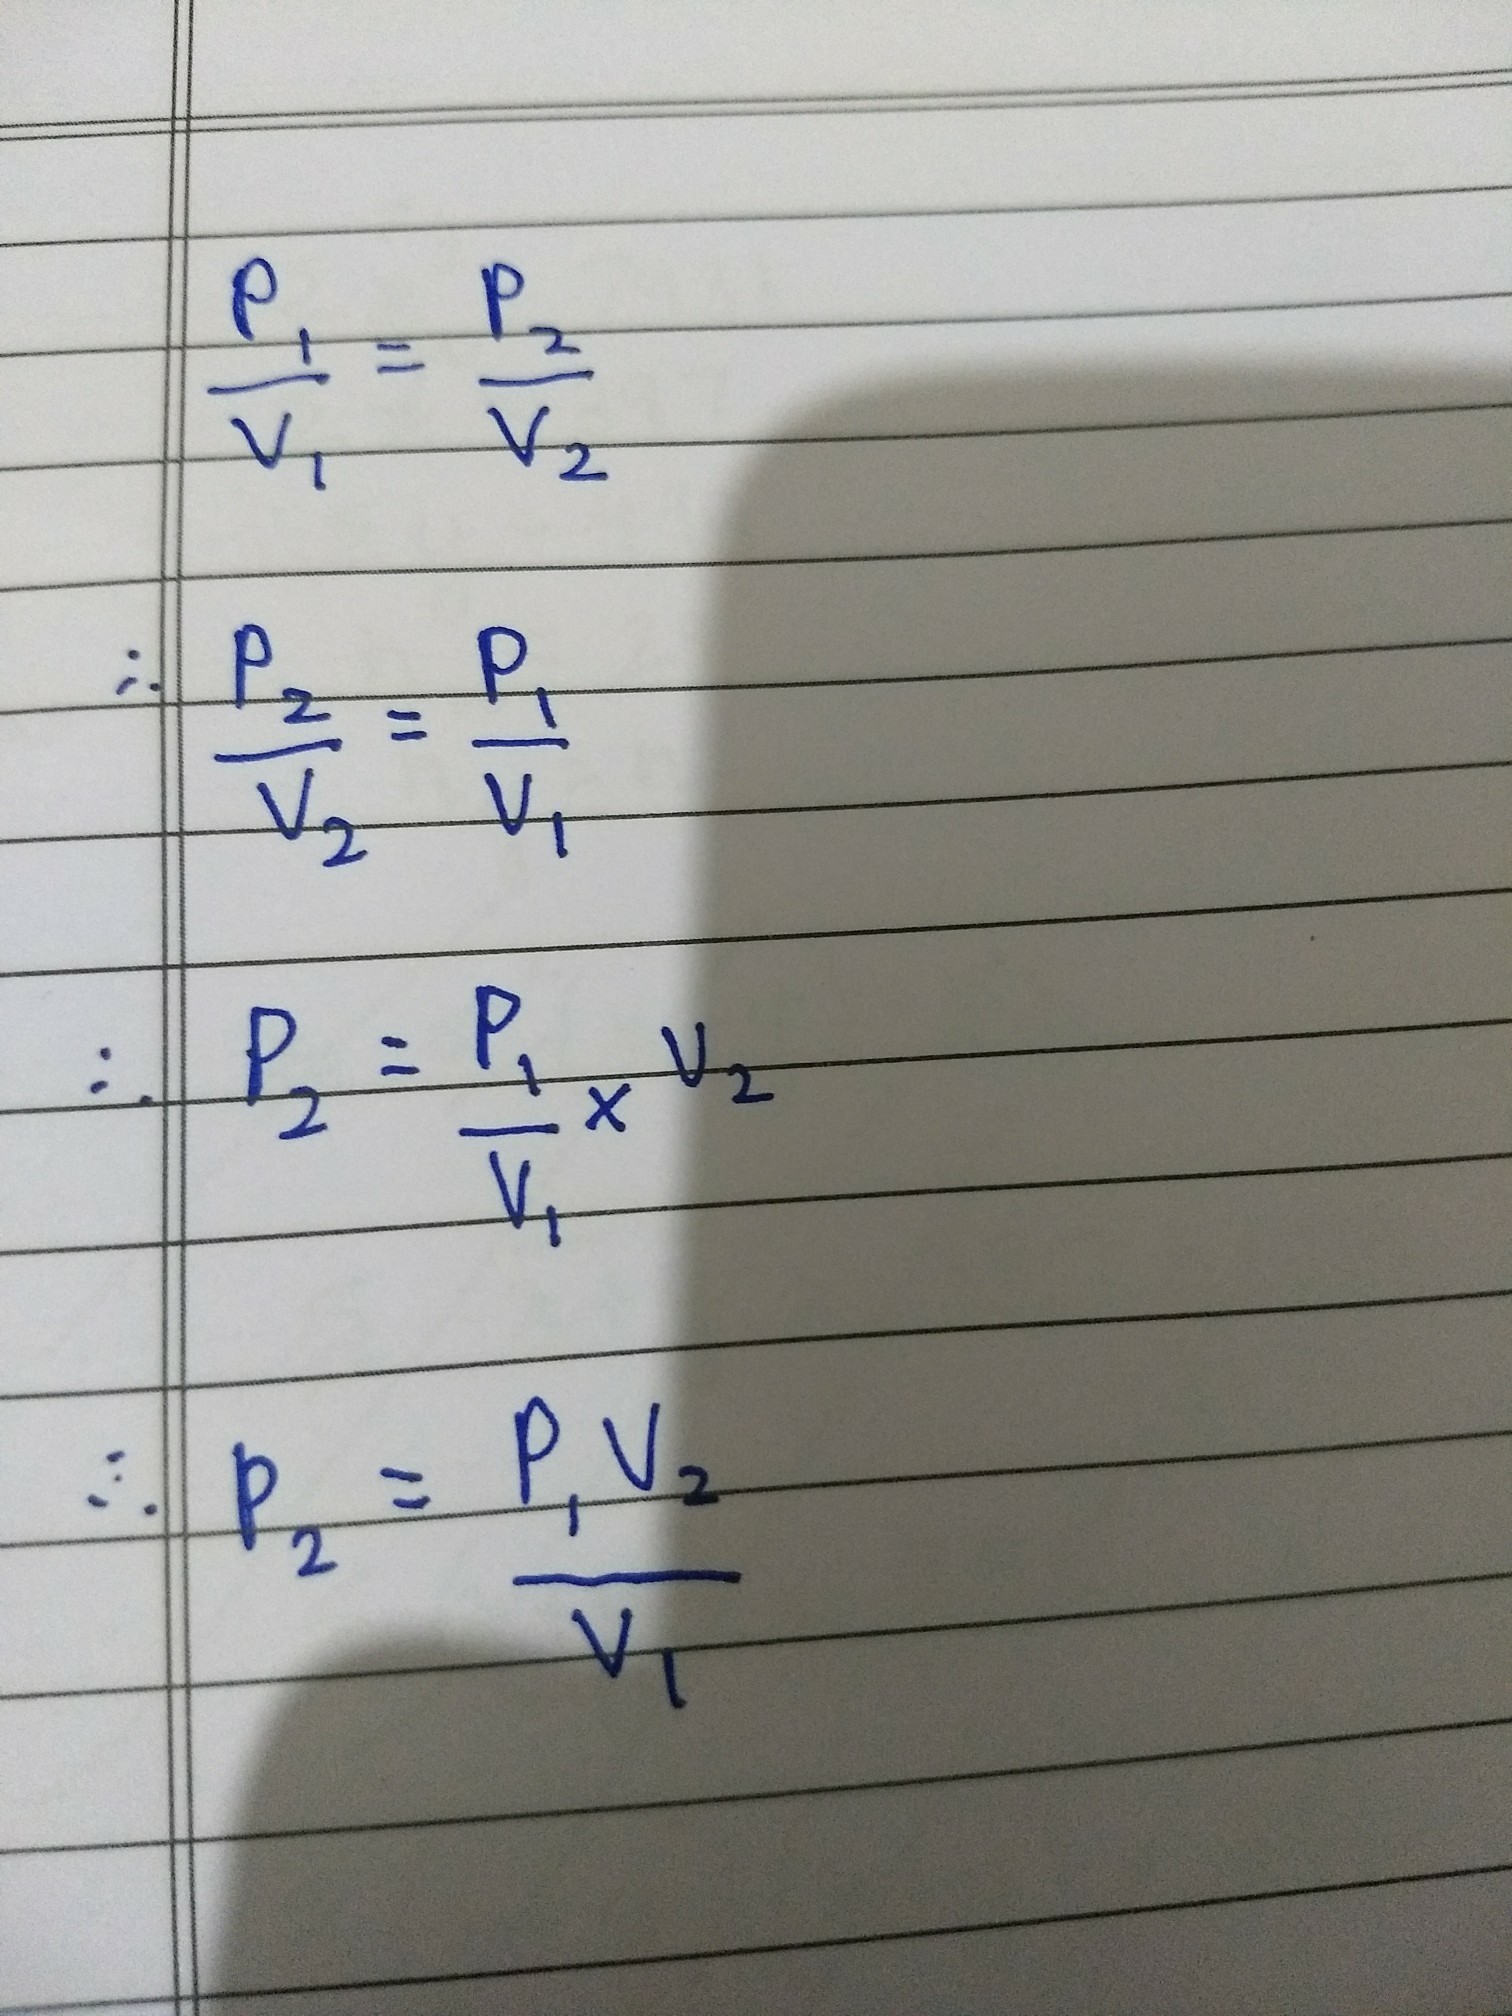 P₁/V₁ = P₂/V₂
∴ P₂/V₂ = P₁/V₁
∴ P₂ = P₁/V₁ × V₂
∴ P₂ = P₁V₂/V₁